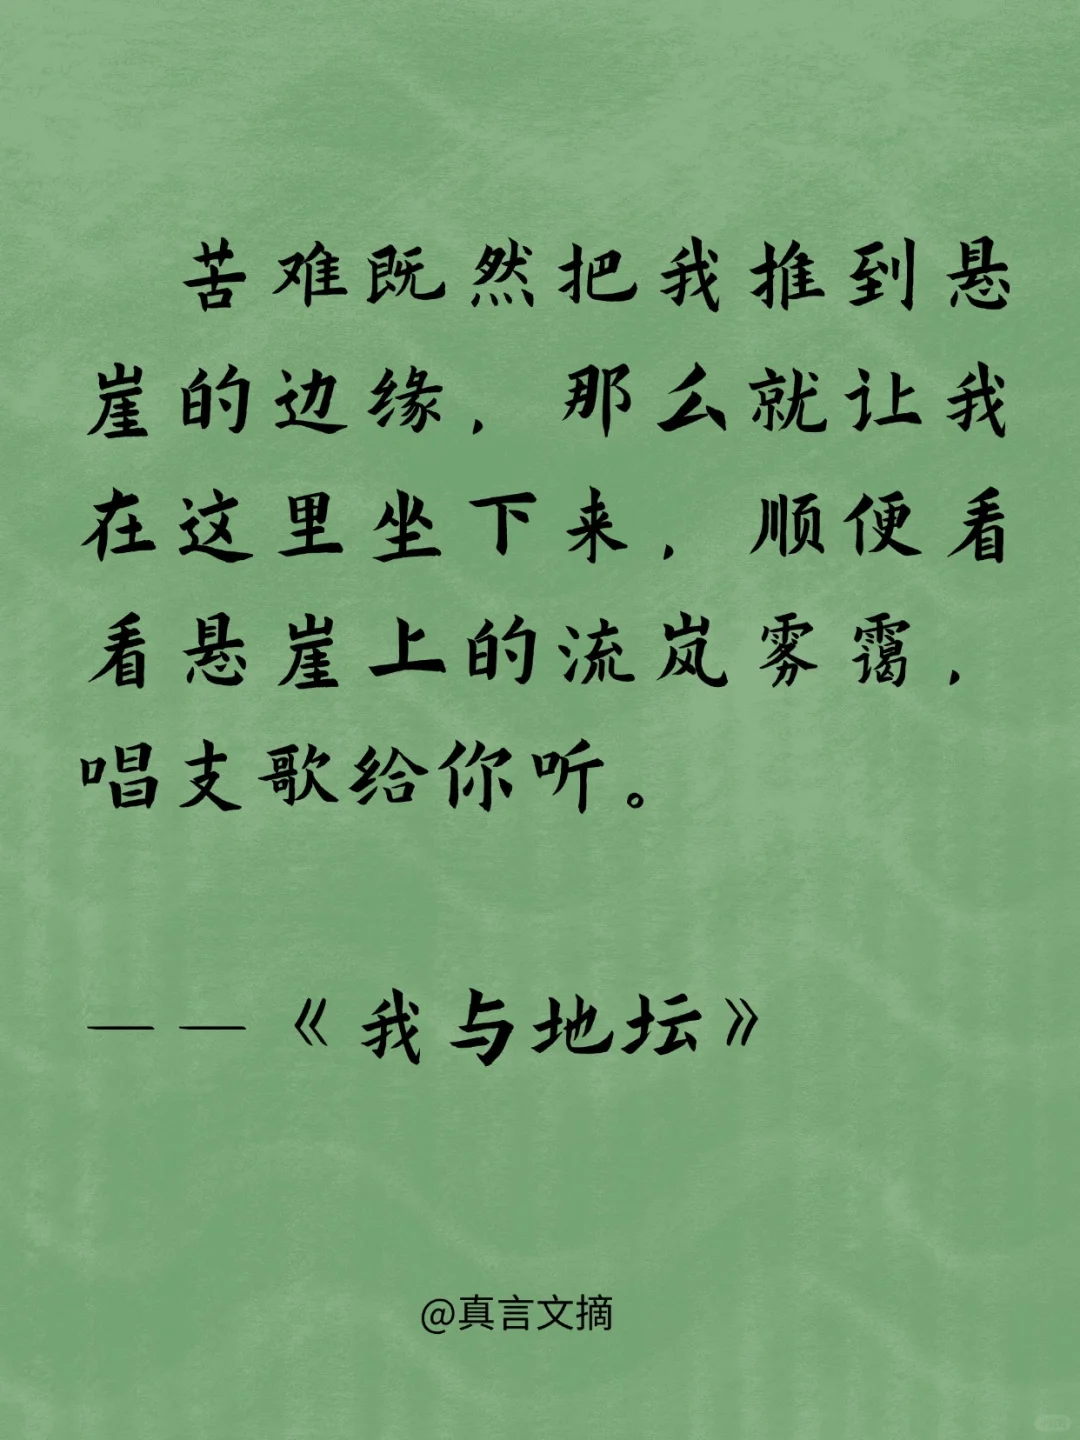 苦难既然把我推到悬
崖的边缘，那么就让我
在这里坐下来，顺便看
看悬崖上的流岚雾霭，
唱支歌给你听。
——《我与地坛》
@真言文摘